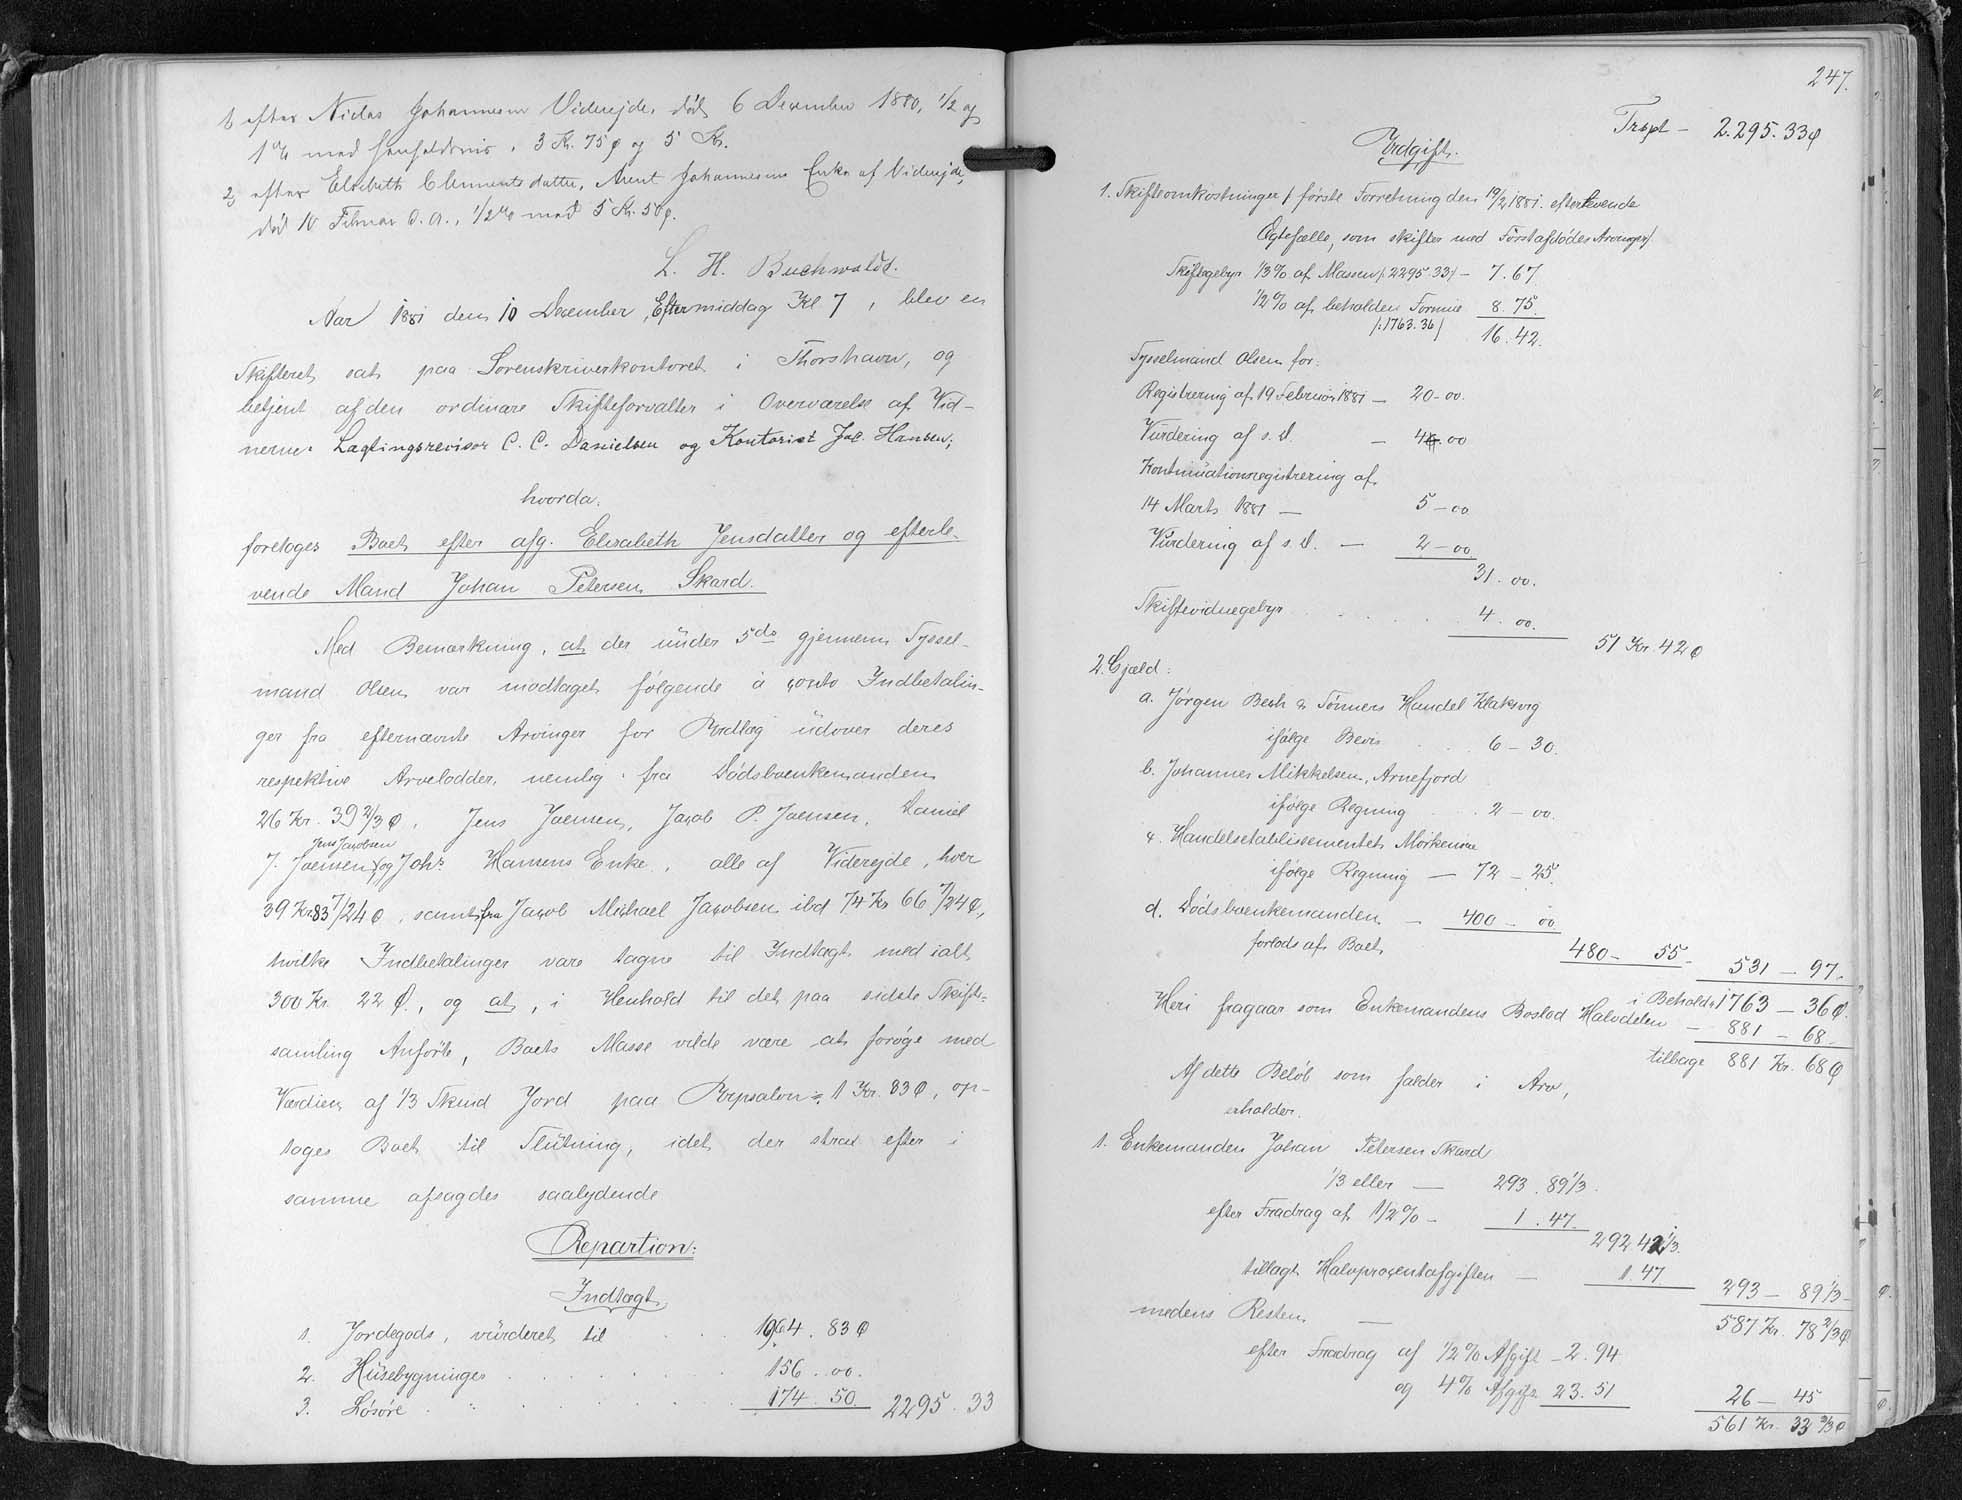 1, efter Niclas Johannesen Viderejde, død 6 December 1880, 1/2 og
1% med henholdsvis, 3 Kr. 75 ø og 5 Kr.
2, efter Elsebeth Clementsdatter, Arent Johannesens Enke af Viderejde,
død 10 Februar d. A., 1/2% med 5 Kr. 50 ø.
L. H. Buchwaldt.
Aar 1881 den 10 December, Eftermiddag Kl 7, blev en
Skifteret sat paa Sorenskriverkontoret i Thorshavn, og
betjent af den ordinære Skifteforvalter i Overværelse af Vid-
nerne: Lagtingsrevisor C. C. Danielsen og Kontorist Jac. Hansen;
hvorda:
foretoges Boet efter afg. Elisabeth Jensdatter og efterle-
vende Mand Johan Petersen Skard.
Med Bemærkning, at der under 5ds gjennem Syssel-
mand Olsen var modtaget følgende à conto Indbetalin-
ger fra efternævnte Arvinger for Udlæg udover deres
respektive Arvelodder, nemlig: fra Dødsboenkemanden
26 Kr. 39 2/3 ø, Jens Joensen, Jacob P. Joensen, Daniel
Jens Jacobsen
J. Joensen, og Johs. Hansens Enke, alle af Viderejde, hver
39 Kr 83 7/24 ø, samt fra Jacob Michael Jacobsen ibd 74 Kr 66 7/24 ø,
hvilke Indbetalinger vare tagne til Indtægt med ialt
300 Kr. 22 Ø., og at, i Henhold til det paa sidste Skifte-
samling Anførte, Boets Masse vilde være at forøge med
Værdien af 1/3 Skind Jord paa 1 Kr. 83 Ø, op-
toges Boet til Slutning, idet der strax efter i
samme afsagdes saalydende
Repartion:
Indtægt
1. Jordegods, vurderet til . . . 1964. 83 Ø
2. Husebygninger . . . . . . 156. 00.
3. Løsøre . . . . . . . 174. 50. 2295. 33
247.
Trspt - 2.295. 33 ø
Udgift.
1. Skifteomkostninger /: første Forretning den 19/2 1881. efterlevende
Ægtefælle, som skifter med Førstafdødes Arvinger/
Skiftegebyr 1/3% af Massen /:2295.33/ - 7. 67.
1/2% af beholden Formue 8. 75.
/:1763.36/
16. 42.
Sysselmand Olsen for:
Registrering af 19 Februar 1881 - 20 - 00.
Vurdering af s. D. - 4. 00
Kontinuationsregistrering af
14 Marts 1881 - 5 - 00
Vurdering af s. D. - 2 - 00
31. 00.
Skiftevidnegebyr . . . . . . 4. 00.
51 Kr. 42 ø
2. Gjæld:
a. Jørgen Bech & Sønners Handel Klaksvig
ifølge Bevis . . . 6 - 30.
b. Johannes Mikkelsen, Arnefjord
ifølge Regning . . . 2 - 00.
c. Handelsetablissementet Mörkenöre
ifølge Regning - 72 - 25.
d. Dødsboenkemanden - 400 - 00
forlods af Boet
480 - 55 - 531 - 97.
i Behold: 1763 - 36 Ø.
Heri fragaar som Enkemandens Boslod Halvdelen - 881 - 68 -
tilbage 881 Kr. 68 Ø
Af dette Beløb som falder i Arv,
erholder.
1. Enkemanden Johan Petersen Skard
1/3 eller - 293. 89 1/3.
efter Fradrag af 1/2% - 1. 47.
292 42 1/3.
tillagt Halvprocentafgiften - 1. 47 293 - 89 1/3 -
medens Resten - 587 Kr. 78 2/3 Ø
efter Fradrag af 1/2% Afgift - 2. 94
og 4% Afgift 23. 51 26 - 45
561 Kr. 33 2/3 Ø